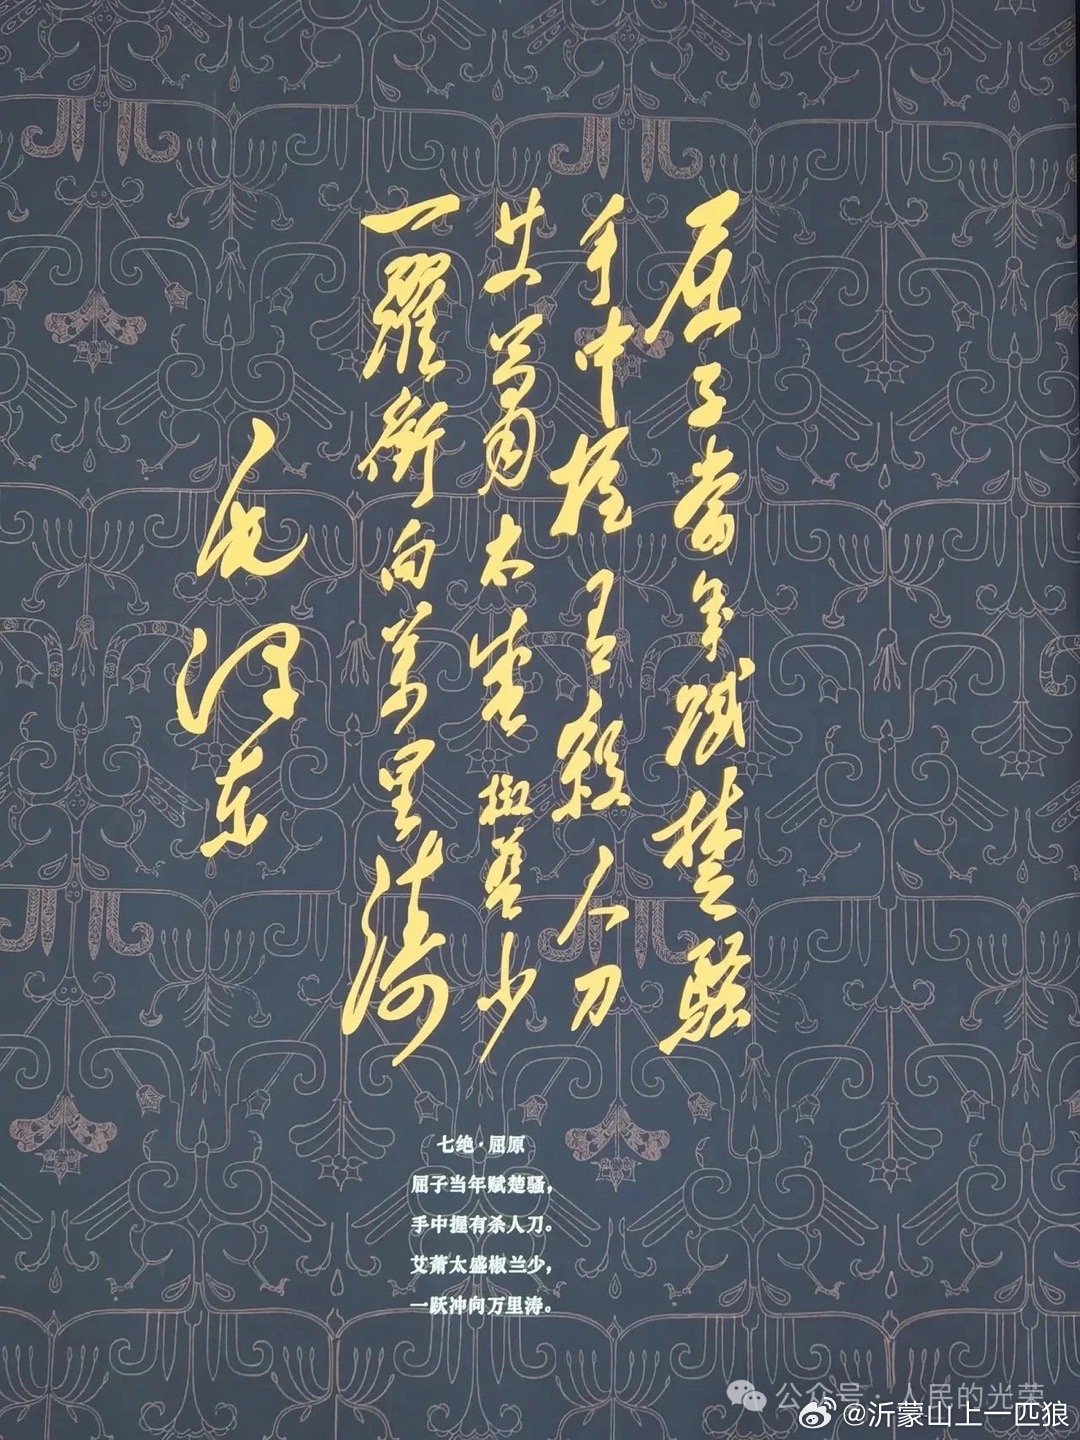 屈子當年賦楚騷
手中握有殺人刀
艾蕭太盛椒蘭少
一躍衝向萬里濤
毛澤東
七绝·屈原
屈子当年赋楚骚，
手中握有杀人刀。
艾萧太盛椒兰少，
一跃冲向万里涛。
公众号·人民的光荣
@沂蒙山上一匹狼